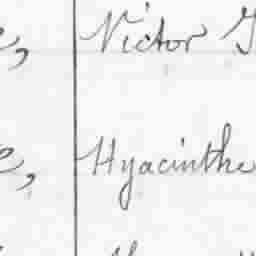 e, Victor J
e, Hyacinthe